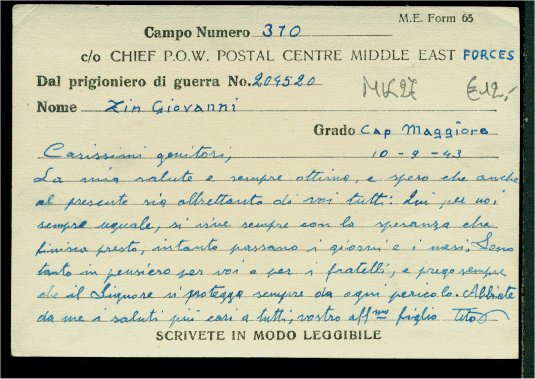 M.E. Form 65
Campo Numero 310
c/o CHIEF P.O.W. POSTAL CENTRE MIDDLE EAST FORCES
Dal prigioniero di guerra No. 209520
Nome Zin Giovanni
Grado Cap Maggiore
Carissimi genitori, 10-9-43
La mia salute e sempre ottima, e spero che anche
al presente sia altrettanto di voi tutti. Qui per noi
sempre uguale, si vive sempre con la speranza che
finisca presto, intanto passano i giorni e i mesi. Sono
tanto in pensiero per voi e per i fratelli, e prego sempre
che il Signore vi protegga sempre da ogni pericolo. Abbiate
da me i saluti più cari a tutti, vostro aff.mo figlio Tito
SCRIVETE IN MODO LEGGIBILE